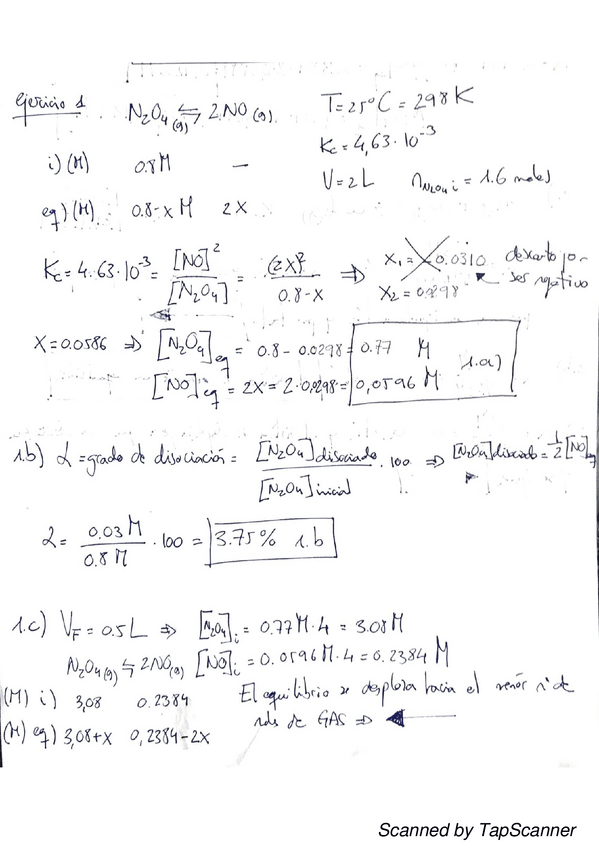 Ejercicio 1 N₂O₄(g) ⇆ 2NO(g) T=25°C = 298K
Kc=4,63·10⁻³
i) (M) 0.8M —
V=2L nN₂O₄ i = 1.6 moles
eq) (M) 0.8-x M 2X
Kc=4.63·10⁻³ = [NO]² / [N₂O₄] = (2X)² / 0.8-X ⇒ X₁ = -0.0310 descarto por ser negativo
X₂ = 0.0298
X=0.0586 ⇒ [N₂O₄]eq = 0.8-0.0298 = 0.77 M
[NO]eq = 2X = 2·0.0298 = 0,0596 M 1.a)
1.b) α = grado de disociación = [N₂O₄]disociado / [N₂O₄]inicial · 100 ⇒ [N₂O₄]disociado = 1/2 [NO]eq
α = 0.03M / 0.8M · 100 = 3.75% 1.b
1.c) VF = 0.5L ⇒ [N₂O₄]i = 0.77M·4 = 3.08M
N₂O₄(g) ⇆ 2NO(g) [NO]i = 0.0596M·4 = 0.2384 M
(M) i) 3,08 0.2384 El equilibrio se desplaza hacia el menor nº de
moles de GAS ⇒ ←
(M) eq) 3,08+x 0,2384-2x
Scanned by TapScanner